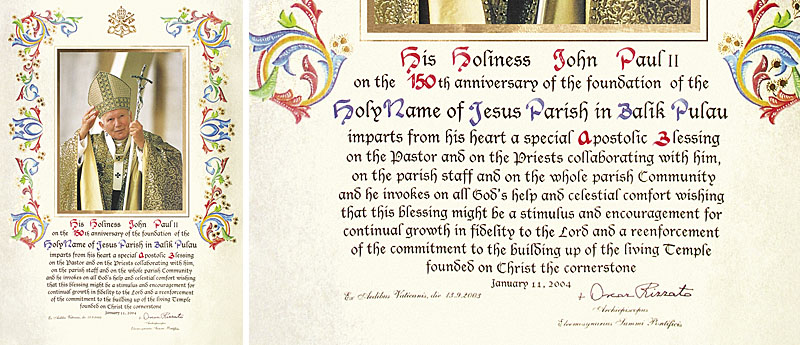 His Holiness John Paul II
on the 150th anniversary of the foundation of the
Holy Name of Jesus Parish in Balik Pulau
imparts from his heart a special Apostolic Blessing
on the Pastor and on the Priests collaborating with him,
on the parish staff and on the whole parish Community
and he invokes on all God's help and celestial comfort wishing
that this blessing might be a stimulus and encouragement for
continual growth in fidelity to the Lord and a reenforcement
of the commitment to the building up of the living Temple
founded on Christ the cornerstone
January 11, 2004
Ex Aedibus Vaticanis, die 13.9.2003
+ Oscar Rizzato
Archiepiscopus
Eleemosynarius Summi Pontificis
His Holiness John Paul II
on the 150th anniversary of the foundation of the
Holy Name of Jesus Parish in Balik Pulau
imparts from his heart a special Apostolic Blessing
on the Pastor and on the Priests collaborating with him,
on the parish staff and on the whole parish Community
and he invokes on all God's help and celestial comfort wishing
that this blessing might be a stimulus and encouragement for
continual growth in fidelity to the Lord and a reenforcement
of the commitment to the building up of the living Temple
founded on Christ the cornerstone
January 11, 2004
Ex Aedibus Vaticanis, die 13.9.2003
+ Oscar Rizzato
Archiepiscopus
Eleemosynarius Summi Pontificis